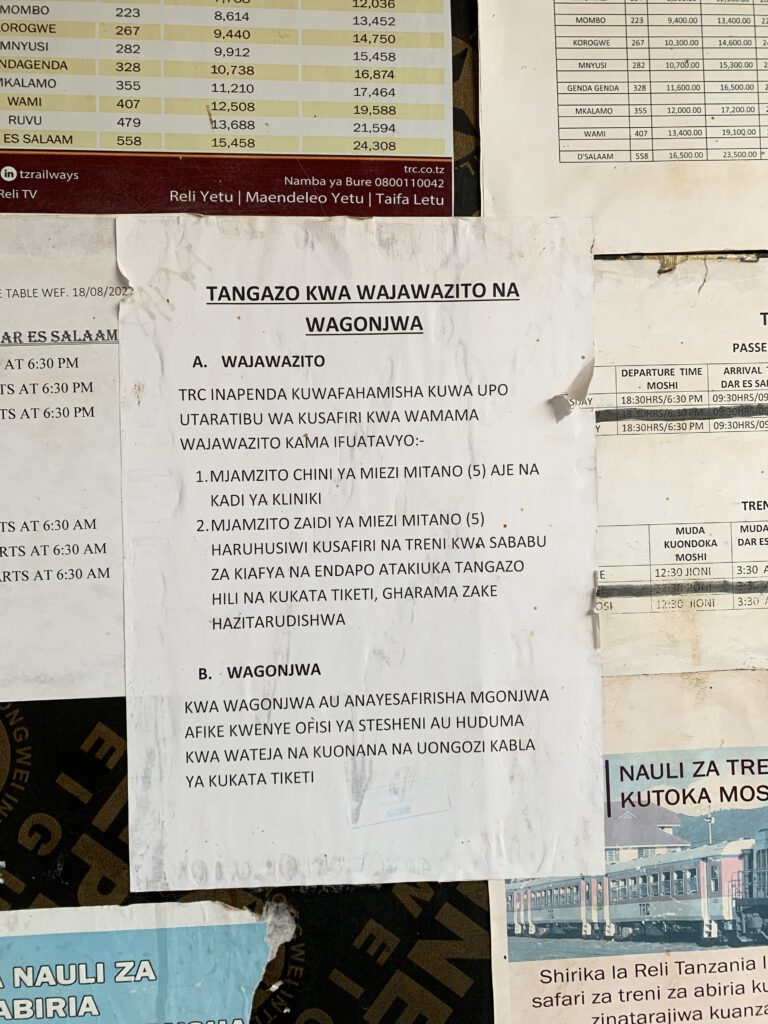 12,036
MOMBO 8,614 13,452
OROGWE 223 9,440 14,750
MNYUSI 267 9,912 15,458
NDAGENDA 282 10,738 16,874
MKALAMO 328 11,210 17,464
WAMI 355 12,508 19,588
RUVU 407 13,688 21,594
ES SALAAM 479 15,458 24,308
558
tzrailways
Reli TV
trc.co.tz
Namba ya Bure 0800110042
Reli Yetu | Maendeleo Yetu | Taifa Letu
MOMBO 223 9,400.00 13,400.00
KOROGWE 267 10,300.00 14,600.00
MNYUSI 282 10,700.00 15,300.00
GENDA GENDA 328 11,600.00 16,500.00
MKALAMO 355 12,000.00 17,200.00
WAMI 407 13,400.00 19,100.00
D'SALAAM 558 16,500.00 23,500.00
E TABLE WEF. 18/08/202
AR ES SALAAM
AT 6:30 PM
TS AT 6:30 PM
TS AT 6:30 PM
TS AT 6:30 AM
RTS AT 6:30 AM
ARTS AT 6:30 AM
TANGAZO KWA WAJAWAZITO NA
WAGONJWA
A. WAJAWAZITO
TRC INAPENDA KUWAFAHAMISHA KUWA UPO
UTARATIBU WA KUSAFIRI KWA WAMAMA
WAJAWAZITO KAMA IFUATAVYO:-
1. MJAMZITO CHINI YA MIEZI MITANO (5) AJE NA
KADI YA KLINIKI
2. MJAMZITO ZAIDI YA MIEZI MITANO (5)
HARUHUSIWI KUSAFIRI NA TRENI KWA SABABU
ZA KIAFYA NA ENDAPO ATAKIUKA TANGAZO
HILI NA KUKATA TIKETI, GHARAMA ZAKE
HAZITARUDISHWA
B. WAGONJWA
KWA WAGONJWA AU ANAYESAFIRISHA MGONJWA
AFIKE KWENYE OFISI YA STESHENI AU HUDUMA
KWA WATEJA NA KUONANA NA UONGOZI KABLA
YA KUKATA TIKETI
PASSE
DEPARTURE TIME
MOSHI
ARRIVAL T
DAR ES SA
SDAY 18:30HRS/6:30 PM 09:30HRS/09
18:30HRS/6:30 PM 09:30HRS/09
Y 18:30HRS/6:30 PM 09:30HRS/09
TREN
MUDA
KUONDOKA
MOSHI
MUDA
DAR ES
E 12:30 JIONI 3:30 A
OSI 12:30 JIONI 3:30 A
NAULI ZA TRE
KUTOKA MOS
TRC
TRC
Shirika la Reli Tanzania l
safari za treni za abiria ku
zinatarajiwa kuanza
A NAULI ZA
ABIRIA